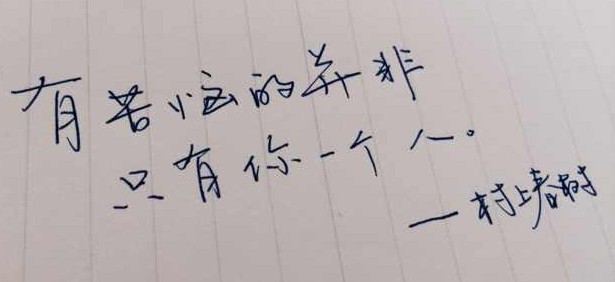 有苦恼的并非
只有你一个人。
—村上春树